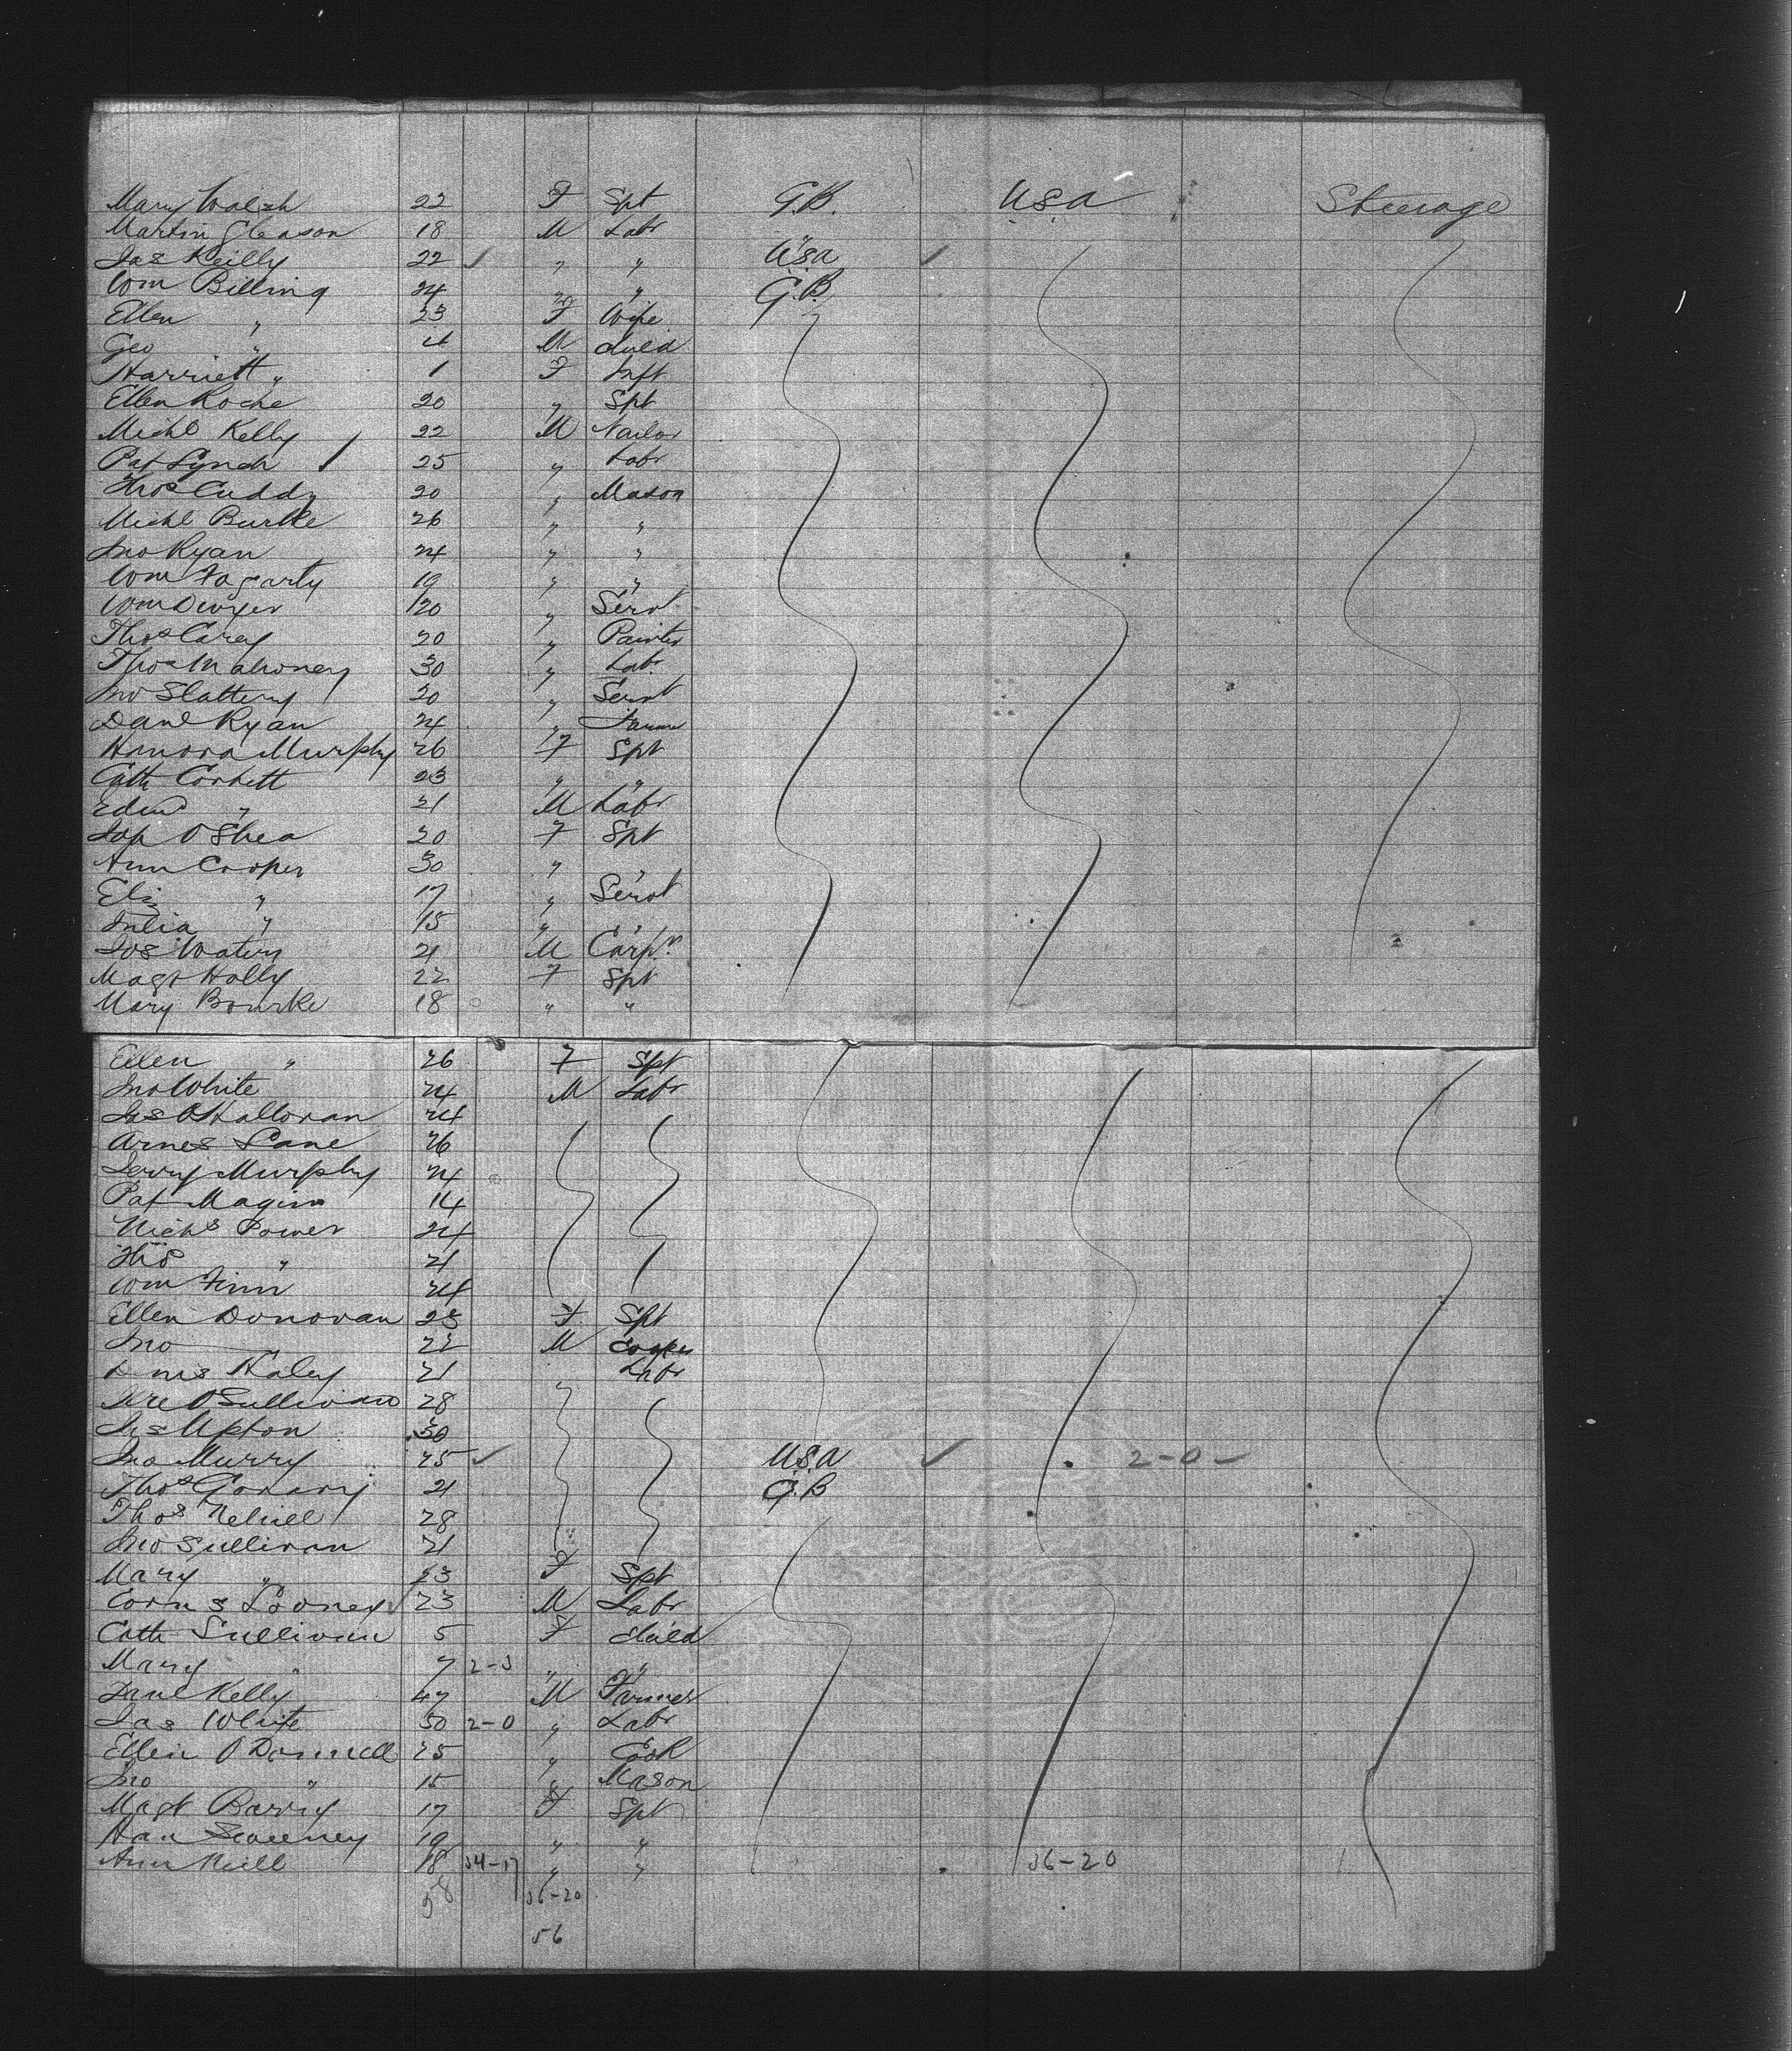 Mary Walsh 22 F Spt G.B. U.S.A Steerage
Martin Gleason 18 M Labr "
Jas Reilly 22 ✓ " " U.S.A ✓
Wm Billing 24 " " G.B.
Ellen " 23 F Wife
Geo " 4 M Child
Harriett " 1 F Inft
Ellen Roche 20 " Spt
Michl Kelly 22 M Nailor
Pat Lynch / 25 " Labr
Thos Cuddy 20 " Mason
Michl Burke 26 " "
Jno Ryan 24 " "
Wm Fogarty 19 " "
Wm Dwyer 20 " Servt
Thos Carey 20 " Painter
Thos Mahoney 30 " Labr
Jno Slattery 20 " Servt
Danl Ryan 24 " Farmer
Hanora Murphy 26 F Spt
Cath Corbett 23 " "
Edwd " 21 M Labr
O'Shea 20 F Spt
Ann Cooper 30 " "
Eliz " 17 " Servt
Julia " 15 " "
Jos Waters 21 M Carpr
Magt Holly 22 F Spt
Mary Bourke 18 " "
Ellen " 26 F Spt
Jno White 24 M Labr
Jas O'Halloran 24
Lane 26
Jerry Murphy 24
Pat Magin 14
Nichs Power 24
Thos " 21
Wm Finn 24
Ellen Donovan 23 F Spt
Jno 22 M Cooper
Haley 21 Labr
Jre O'Sullivan 28
Jas Upton 30
Jno Murry 25 ✓ U.S.A ✓ 2-0
Thos 21 G.B
Thos 28
Jno Sullivan 21
Mary " 23 F Spt
Corns Looney 23 M Labr
Cath Sullivan 5 F Child
Mary " 7 2-3 " "
Danl Kelly 47 M Farmer
Jas White 50 2-0 " Labr
Ellen O'Donnell 25 " Cook
Jno " 15 " Mason
Magt Barry 17 F Spt
Han Sweeney 19 " "
Ann Neill 18 34-17 " " 36-20
58 36-20
56